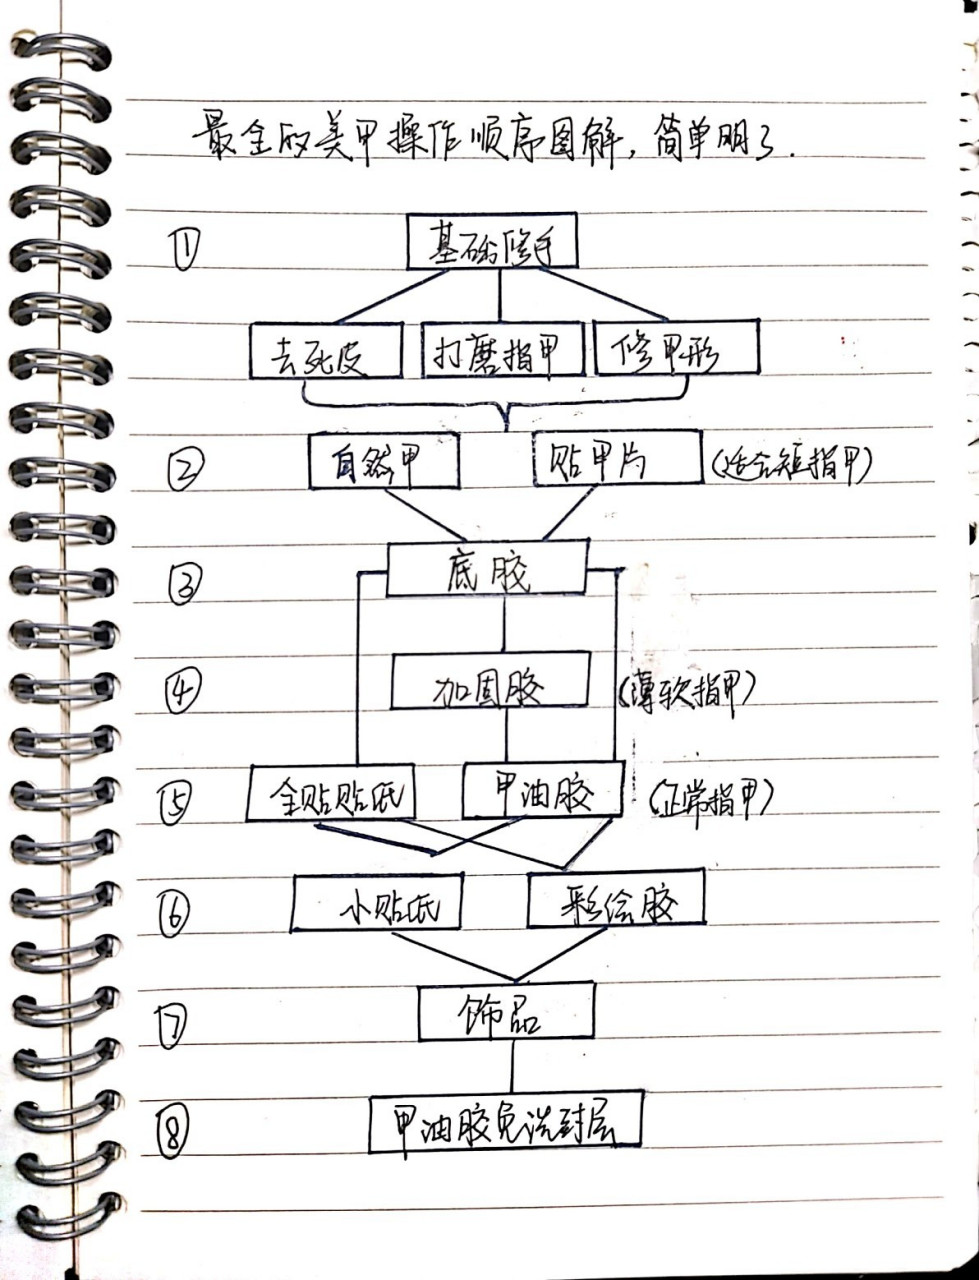 最全的美甲操作顺序图解,简单明了.
① 基础修手
去死皮 打磨指甲 修甲形
② 自然甲 贴甲片 (适合短指甲)
③ 底胶
④ 加固胶 (薄软指甲)
⑤ 全贴贴纸 甲油胶 (正常指甲)
⑥ 小贴纸 彩绘胶
⑦ 饰品
⑧ 甲油胶免洗封层